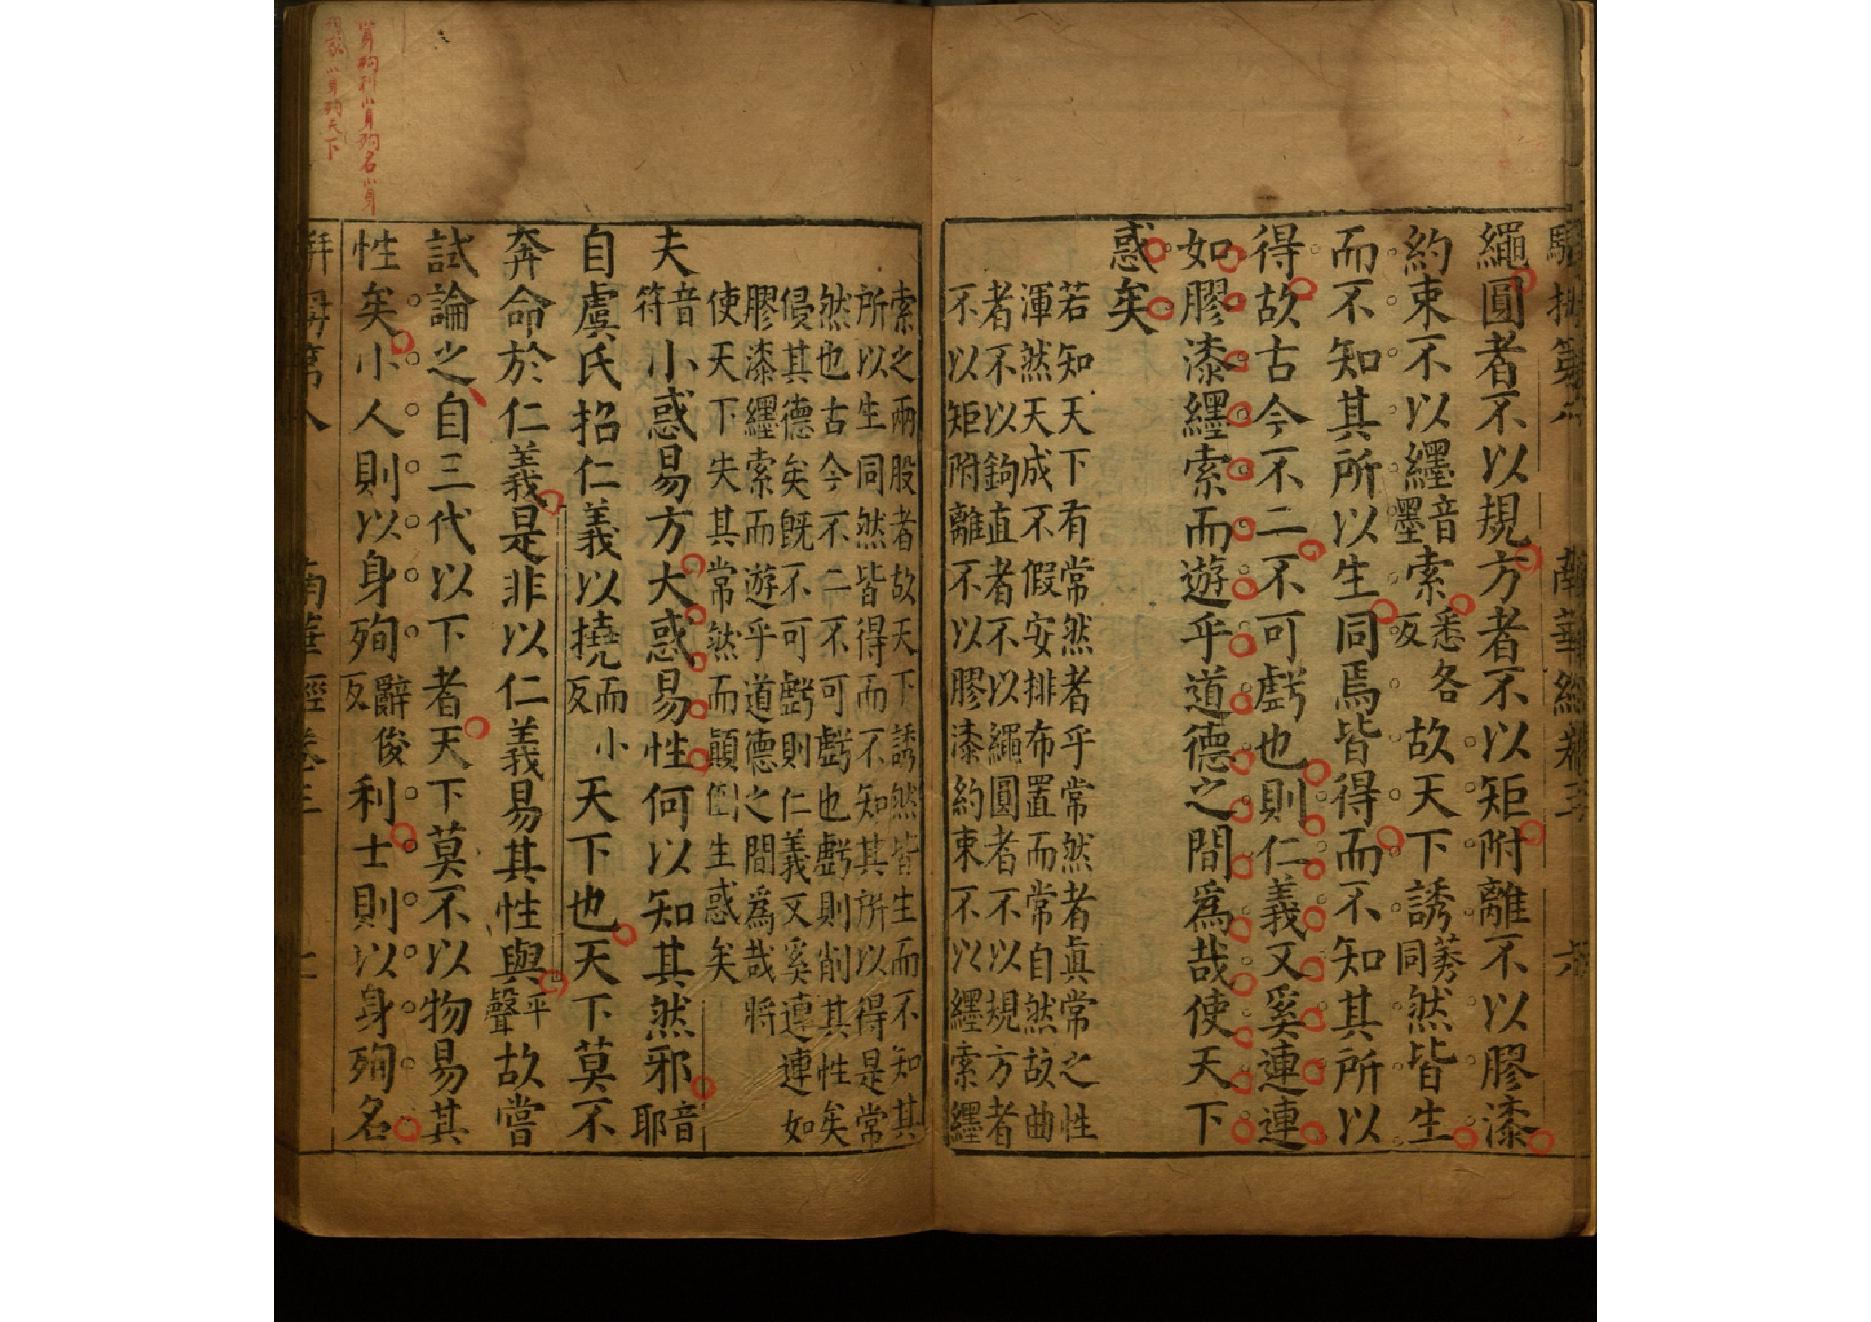 駢拇第八　南華經卷三　六
繩圓者不以規方者不以矩附離不以膠漆
約束不以纆音墨索悉各反故天下誘莠同然皆生
而不知其所以生同焉皆得而不知其所以
得故古今不二不可虧也則仁義又奚連連
如膠漆纆索而遊乎道德之間爲哉使天下
惑矣
若知天下有常然者乎常然者眞常之性
渾然天成不假安排布置而常自然故曲
者不以鉤直者不以繩圓者不以規方者
不以矩附離不以膠漆約束不以纆索纆
索之兩股者故天下誘然皆生而不知其
所以生同然皆得而不知其所以得是常
然也古今不二不可虧也虧則削其性矣
侵其德矣既不可虧則仁義又奚連連如
膠漆纆索而遊乎道德之間爲哉將
使天下失其常然而顚倒生惑矣
夫音符小惑易方大惑易性何以知其然邪音耶
自虞氏招仁義以撓而小反天下也天下莫不
奔命於仁義是非以仁義易其性與平聲故嘗
試論之自三代以下者天下莫不以物易其
性矣小人則以身殉辭俊反利士則以身殉名
駢拇第八　南華經卷三　七
身殉利以身殉名以身
以身殉天下